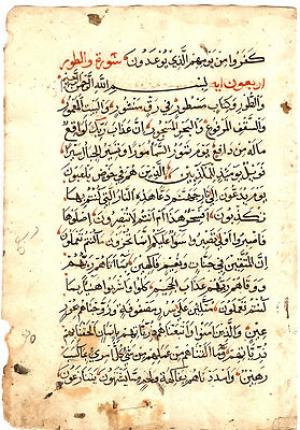 كفروا من يومهم الذي يوعدون سورة والطور
اربعون ايه بسم الله الرحمن الرحيم
والطور وكتاب مسطور في رق منشور والبيت المعمور
والسقف المرفوع والبحر المسجور ان عذاب ربك لواقع
ماله من دافع يوم تمور السماء مورا وتسير الجبال سيرا
فويل يومئذ للمكذبين الذين هم في خوض يلعبون
يوم يدعون الى نار جهنم دعا هذه النار التي كنتم بها
تكذبون افسحر هذا ام انتم لا تبصرون اصلوها
فاصبروا او لا تصبروا سواء عليكم انما تجزون ما كنتم تعملون
ان المتقين في جنات ونعيم فاكهين بما اتاهم ربهم
ووقاهم ربهم عذاب الجحيم كلوا واشربوا هنيئا بما
كنتم تعملون متكئين على سرر مصفوفة وزوجناهم بحور
عين والذين امنوا واتبعناهم ذرياتهم بايمان الحقنا بهم
ذرياتهم وما التناهم من عملهم من شيء كل امرئ بما كسب
رهين وامددناهم بفاكهة ولحم مما يشتهون يتنازعون